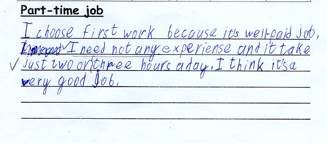 Part-time job
I choose first work because it's well-paid job.
I need not any experiense and it take
just two or three hours a day. I think it's a
very good job.